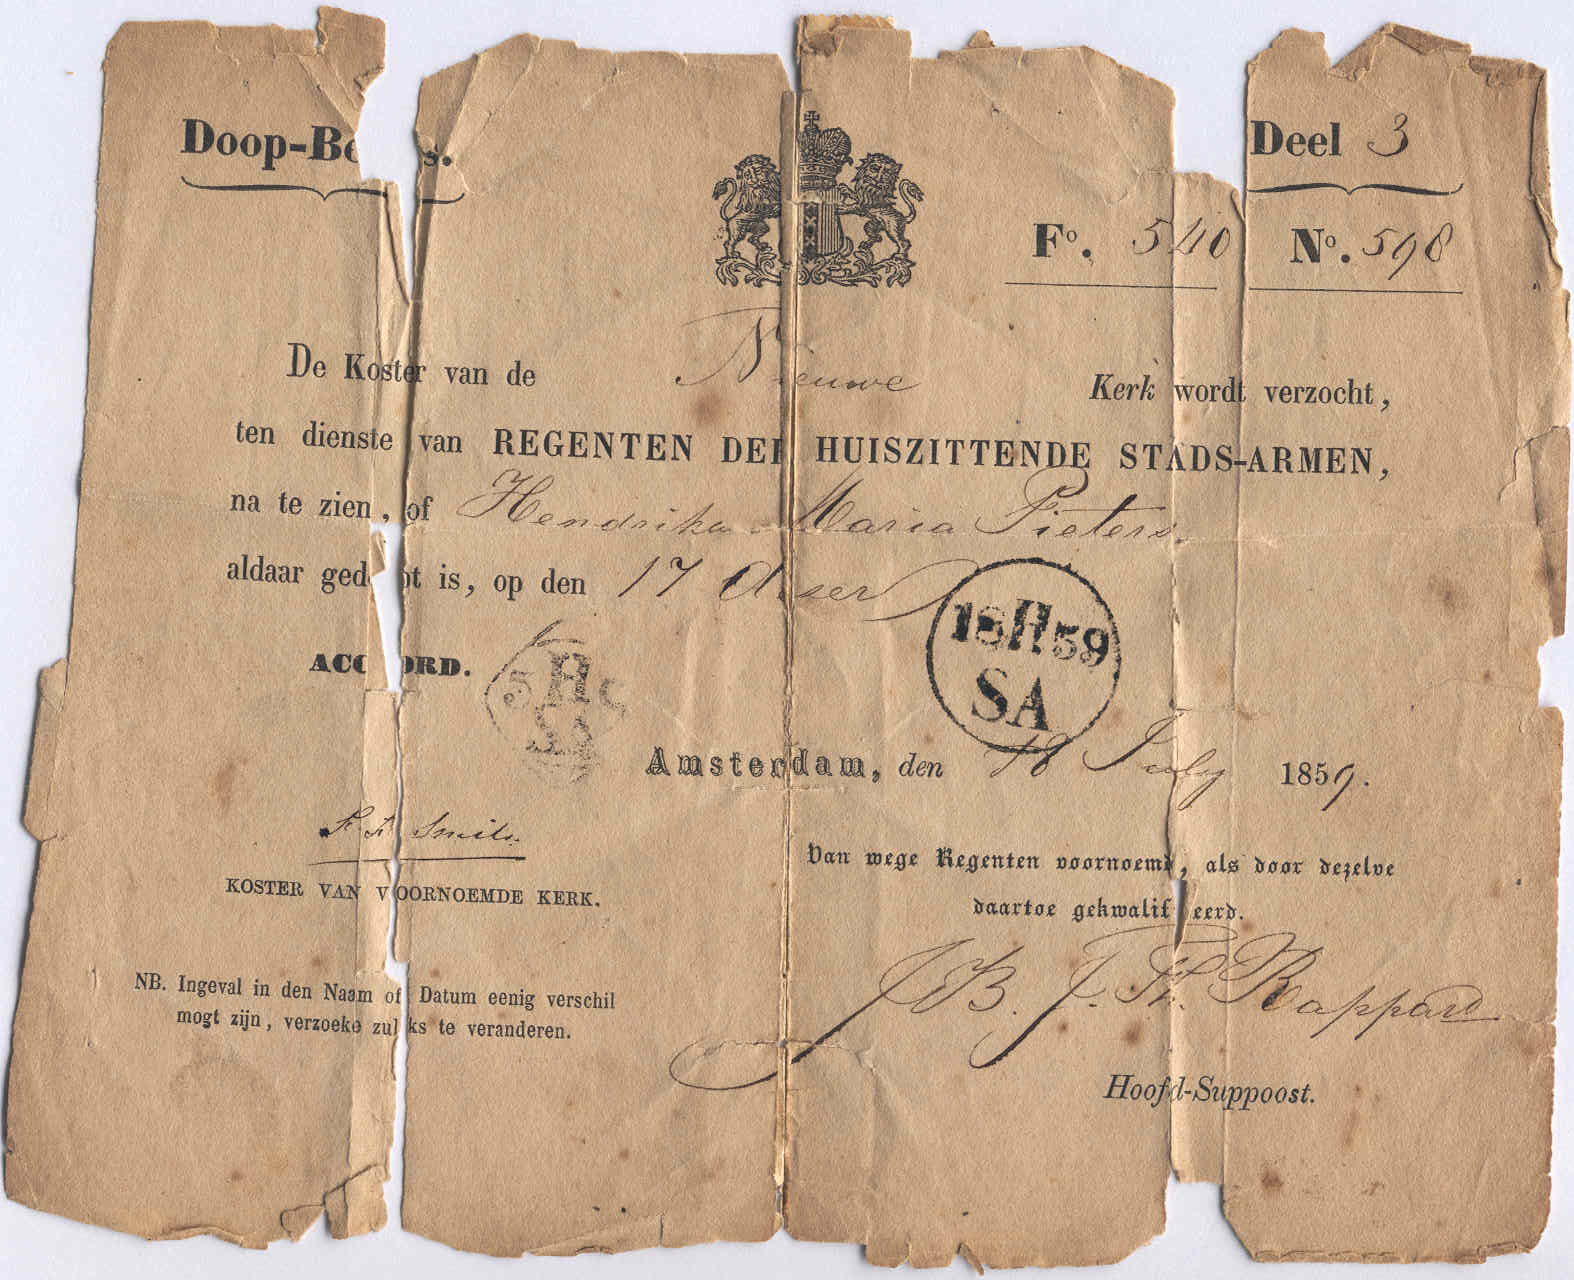 Doop-Be s. Deel 3
Fo. 540 No. 598
De Koster van de Nieuwe Kerk wordt verzocht,
ten dienste van REGENTEN DER HUISZITTENDE STADS-ARMEN,
na te zien, of Hendrika Maria Pieters
aldaar gedoopt is, op den 17 deser
18 H 59
SA
ACCOORD.
5 H
SA
Amsterdam, den 18 July 1859.
Smits
KOSTER VAN VOORNOEMDE KERK.
Van wege Regenten voornoemd, als door dezelve
daartoe gekwalificeerd.
NB. Ingeval in den Naam of Datum eenig verschil
mogt zijn, verzoeke zulks te veranderen.
J. B. J. Th. Rappard
Hoofd-Suppoost.